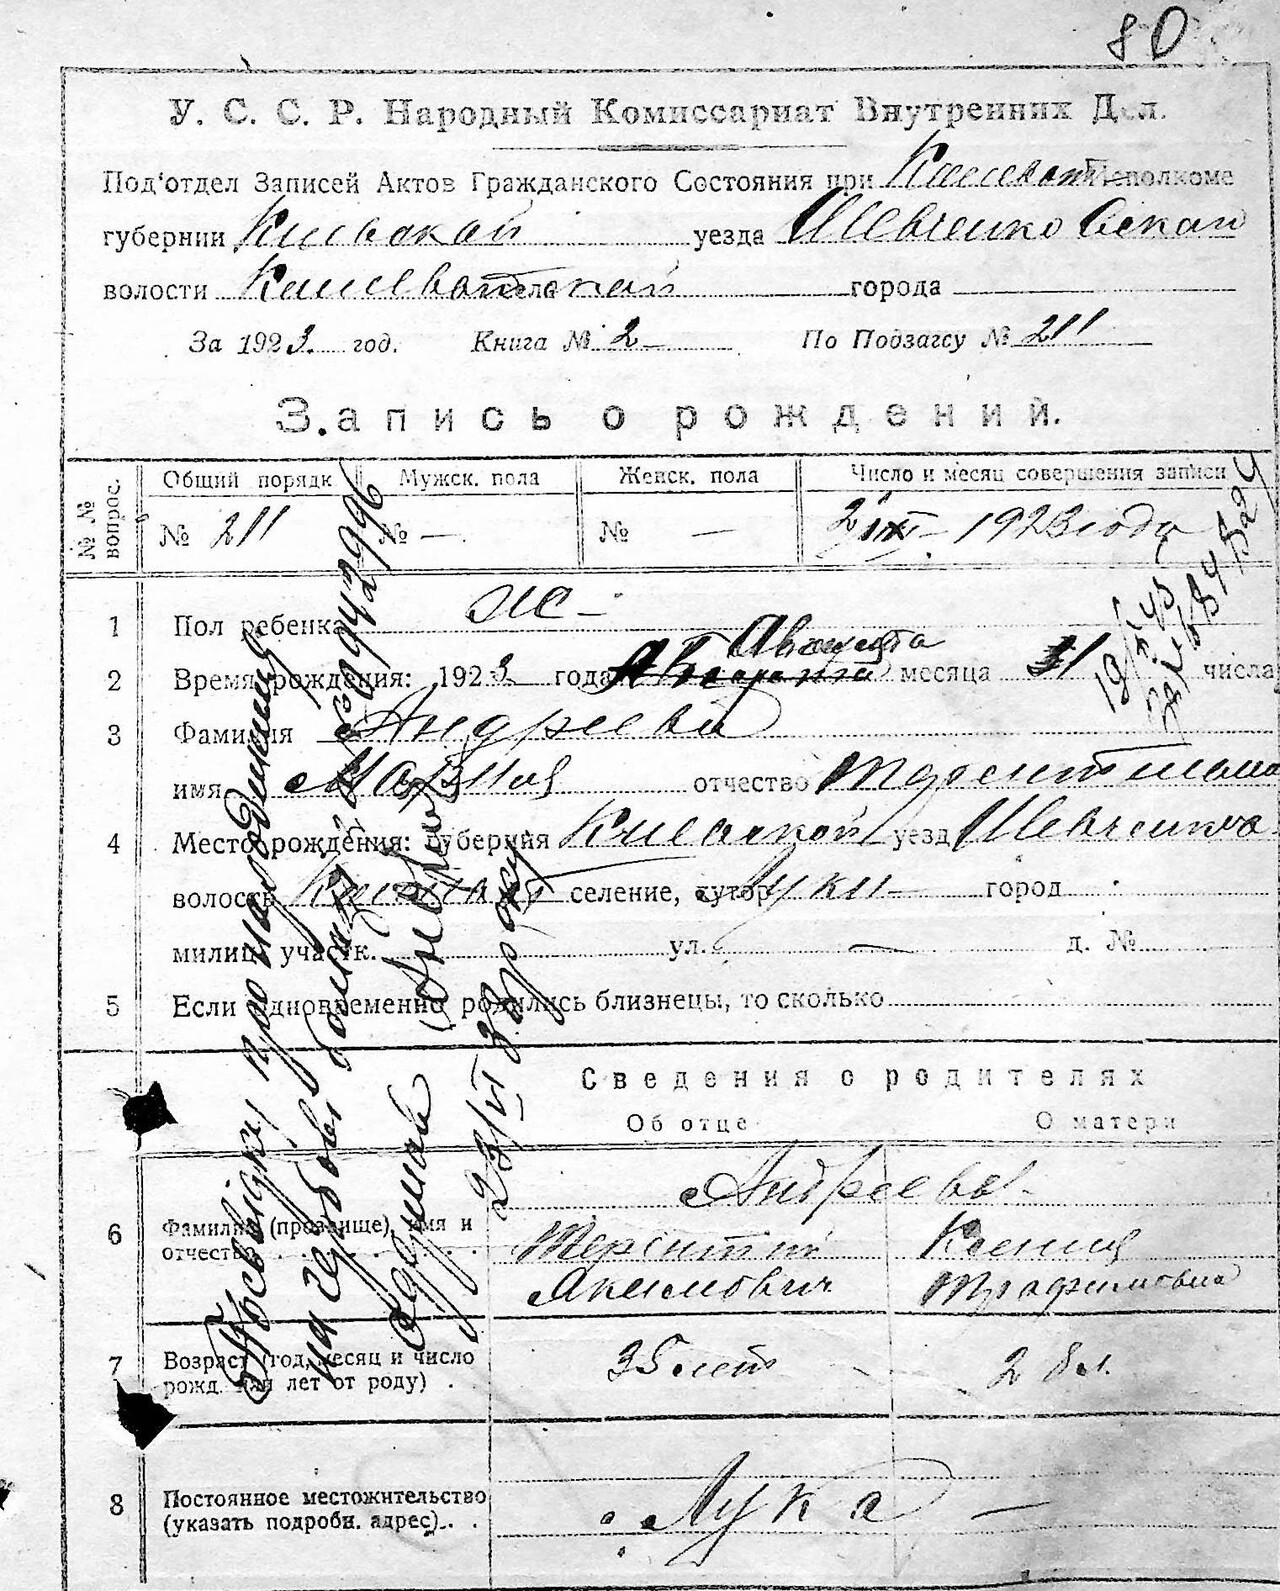 80
У. С. С. Р. Народный Комиссариат Внутренних Дел.
Под'отдел Записей Актов Гражданского Состояния при Кошеват Исполкоме
губернии Киевской уезда Шевченковскаи
волости Кошеватской города
За 1923 год. Книга № 2 По Подзагсу № 211
Запись о рождений.
№ № вопрос.
Общий порядк Мужск. пола Женск. пола Число и месяц совершения записи
№ 211 № — № — 1923 года
1 Пол ребенка Ж —
2 Время рождения: 1923 года Августа месяца 31 числа
3 Фамилия Андреева
имя Мария отчество
4 Место рождения: губерния Киевской уезд Шевченков
волость селение, хутор Луки — город
милиц. участк. ул. — д. №
5 Если одновременно родились близнецы, то сколько
Сведения о родителях
Об отце О матери
Андреевы
6 Фамилия (прозвище), имя и отчество Терентий Ксения
Акимович Трофимовна
7 Возраст (год, месяц и число рожд. или лет от роду) 35 лет 28 л.
8 Постоянное местожительство (указать подробн. адрес) с. Лука —
Посвідку про народження